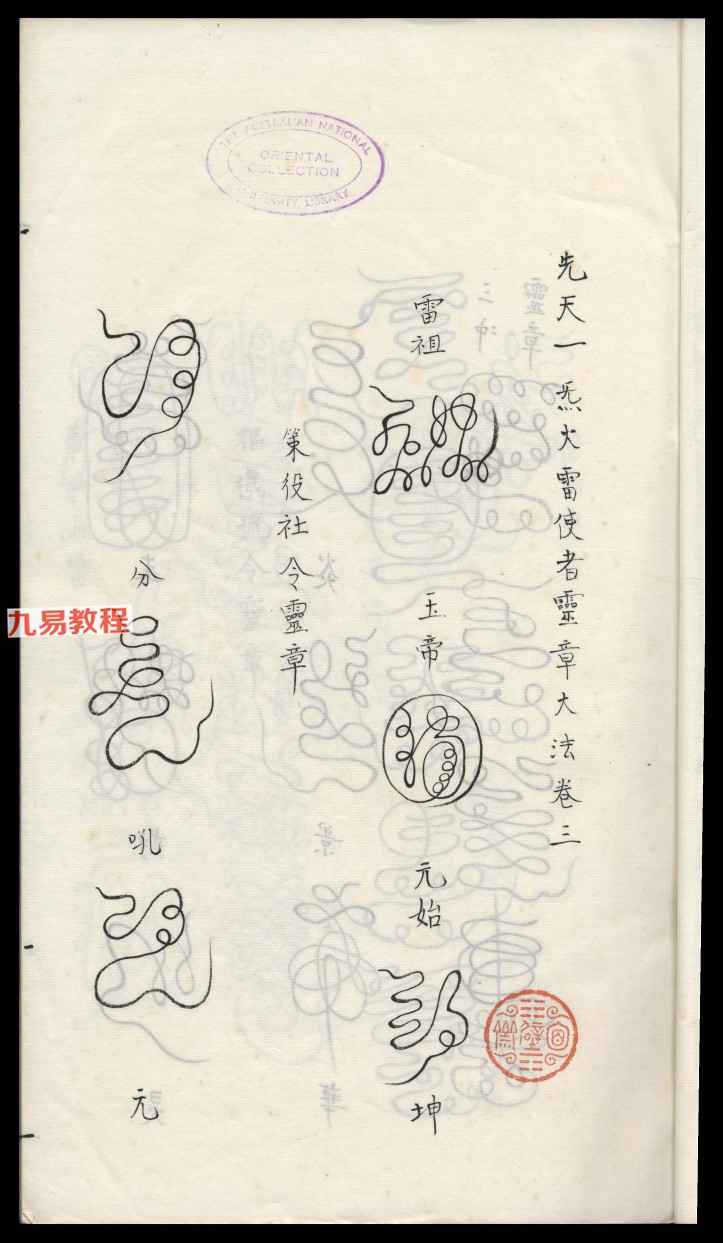 先天一炁火雷使者靈章大法卷三
雷祖
玉帝
元始
坤
策役社令靈章
分
吼
元
九易教程
THE AUSTRALIAN NATIONAL
ORIENTAL
COLLECTION
UNIVERSITY LIBRARY